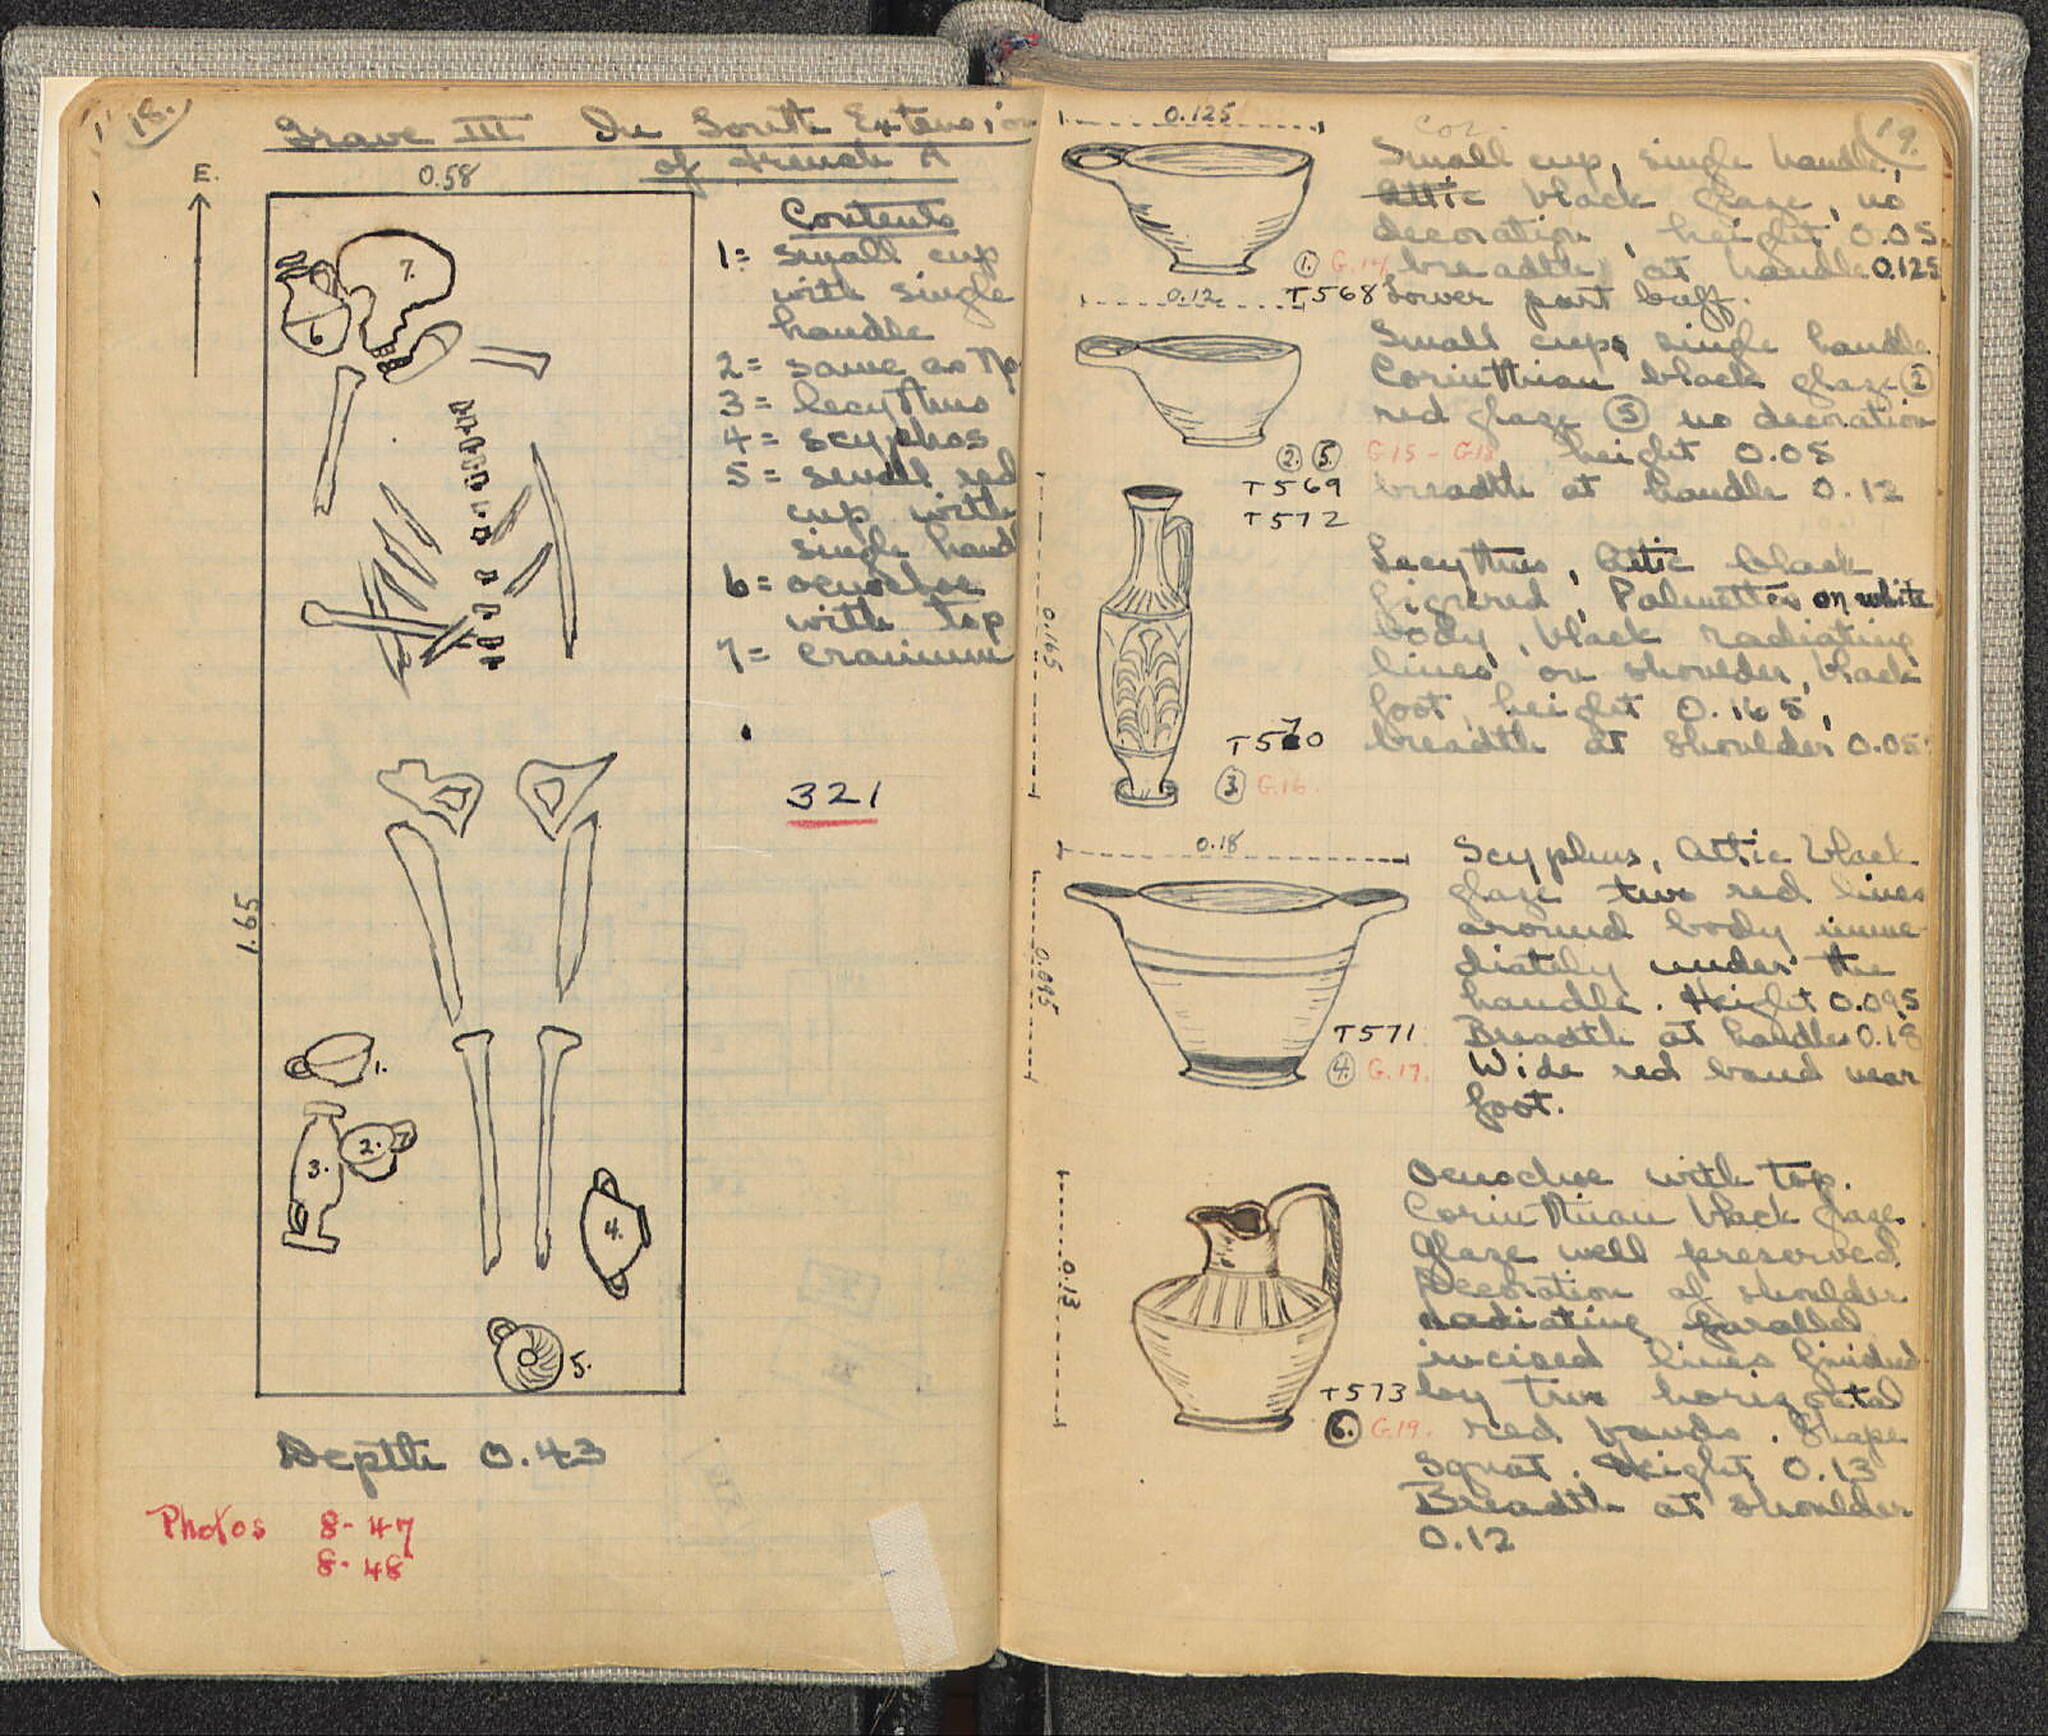 18.
Grave III In South Extension
of trench A
E.
0.58
Contents
1= small cup
with single
handle
2= same as No
3= lecythus
4= scyphos
5= small red
cup with
single hand
6= oenochoe
with top
7= cranium
7.
6
321
1.65
1.
2.
3.
4.
5.
Depth 0.43
Photos 8-47
8-48
19.
0.125
Cor.
Small cup, single handle,
Attic black glaze, no
decoration, height 0.05
1. G.14. breadth at handle 0.125
T568 Lower part buff.
0.12
Small cups single handle
Corinthian black glaze 2
red glaze 5 no decoration
2. 5. G.15 - G.18 height 0.05
T569 breadth at handle 0.12
T572
Lecythus, Attic black
figured, Palmettes on white
body, black radiating
lines on shoulder, black
foot, height 0.165,
T570 breadth at shoulder 0.05
3. G.16.
0.165
0.18
Scyphus, Attic black
glaze two red lines
around body imme-
diately under the
handle. Height 0.095
T571 Breadth at handles 0.18
4. G.17. Wide red band near
foot.
0.095
Oenochoe with top.
Corinthian black glaze.
Glaze well preserved.
Decoration of shoulder
radiating parallel
incised lines finished
T573 by two horizontal
6. G.19. red bands. Shape
squat. Height 0.13
Breadth at shoulder
0.12
0.13